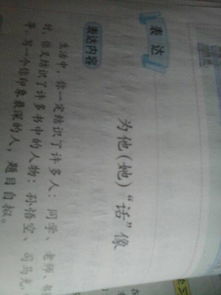 表达
为他(她)“话”像
表达内容
生活中,你一定结识了许多人:同学、老师、
时,你又结识了许多书中的人物:孙悟空、司马光
写一个你印象最深的人,题目自拟。